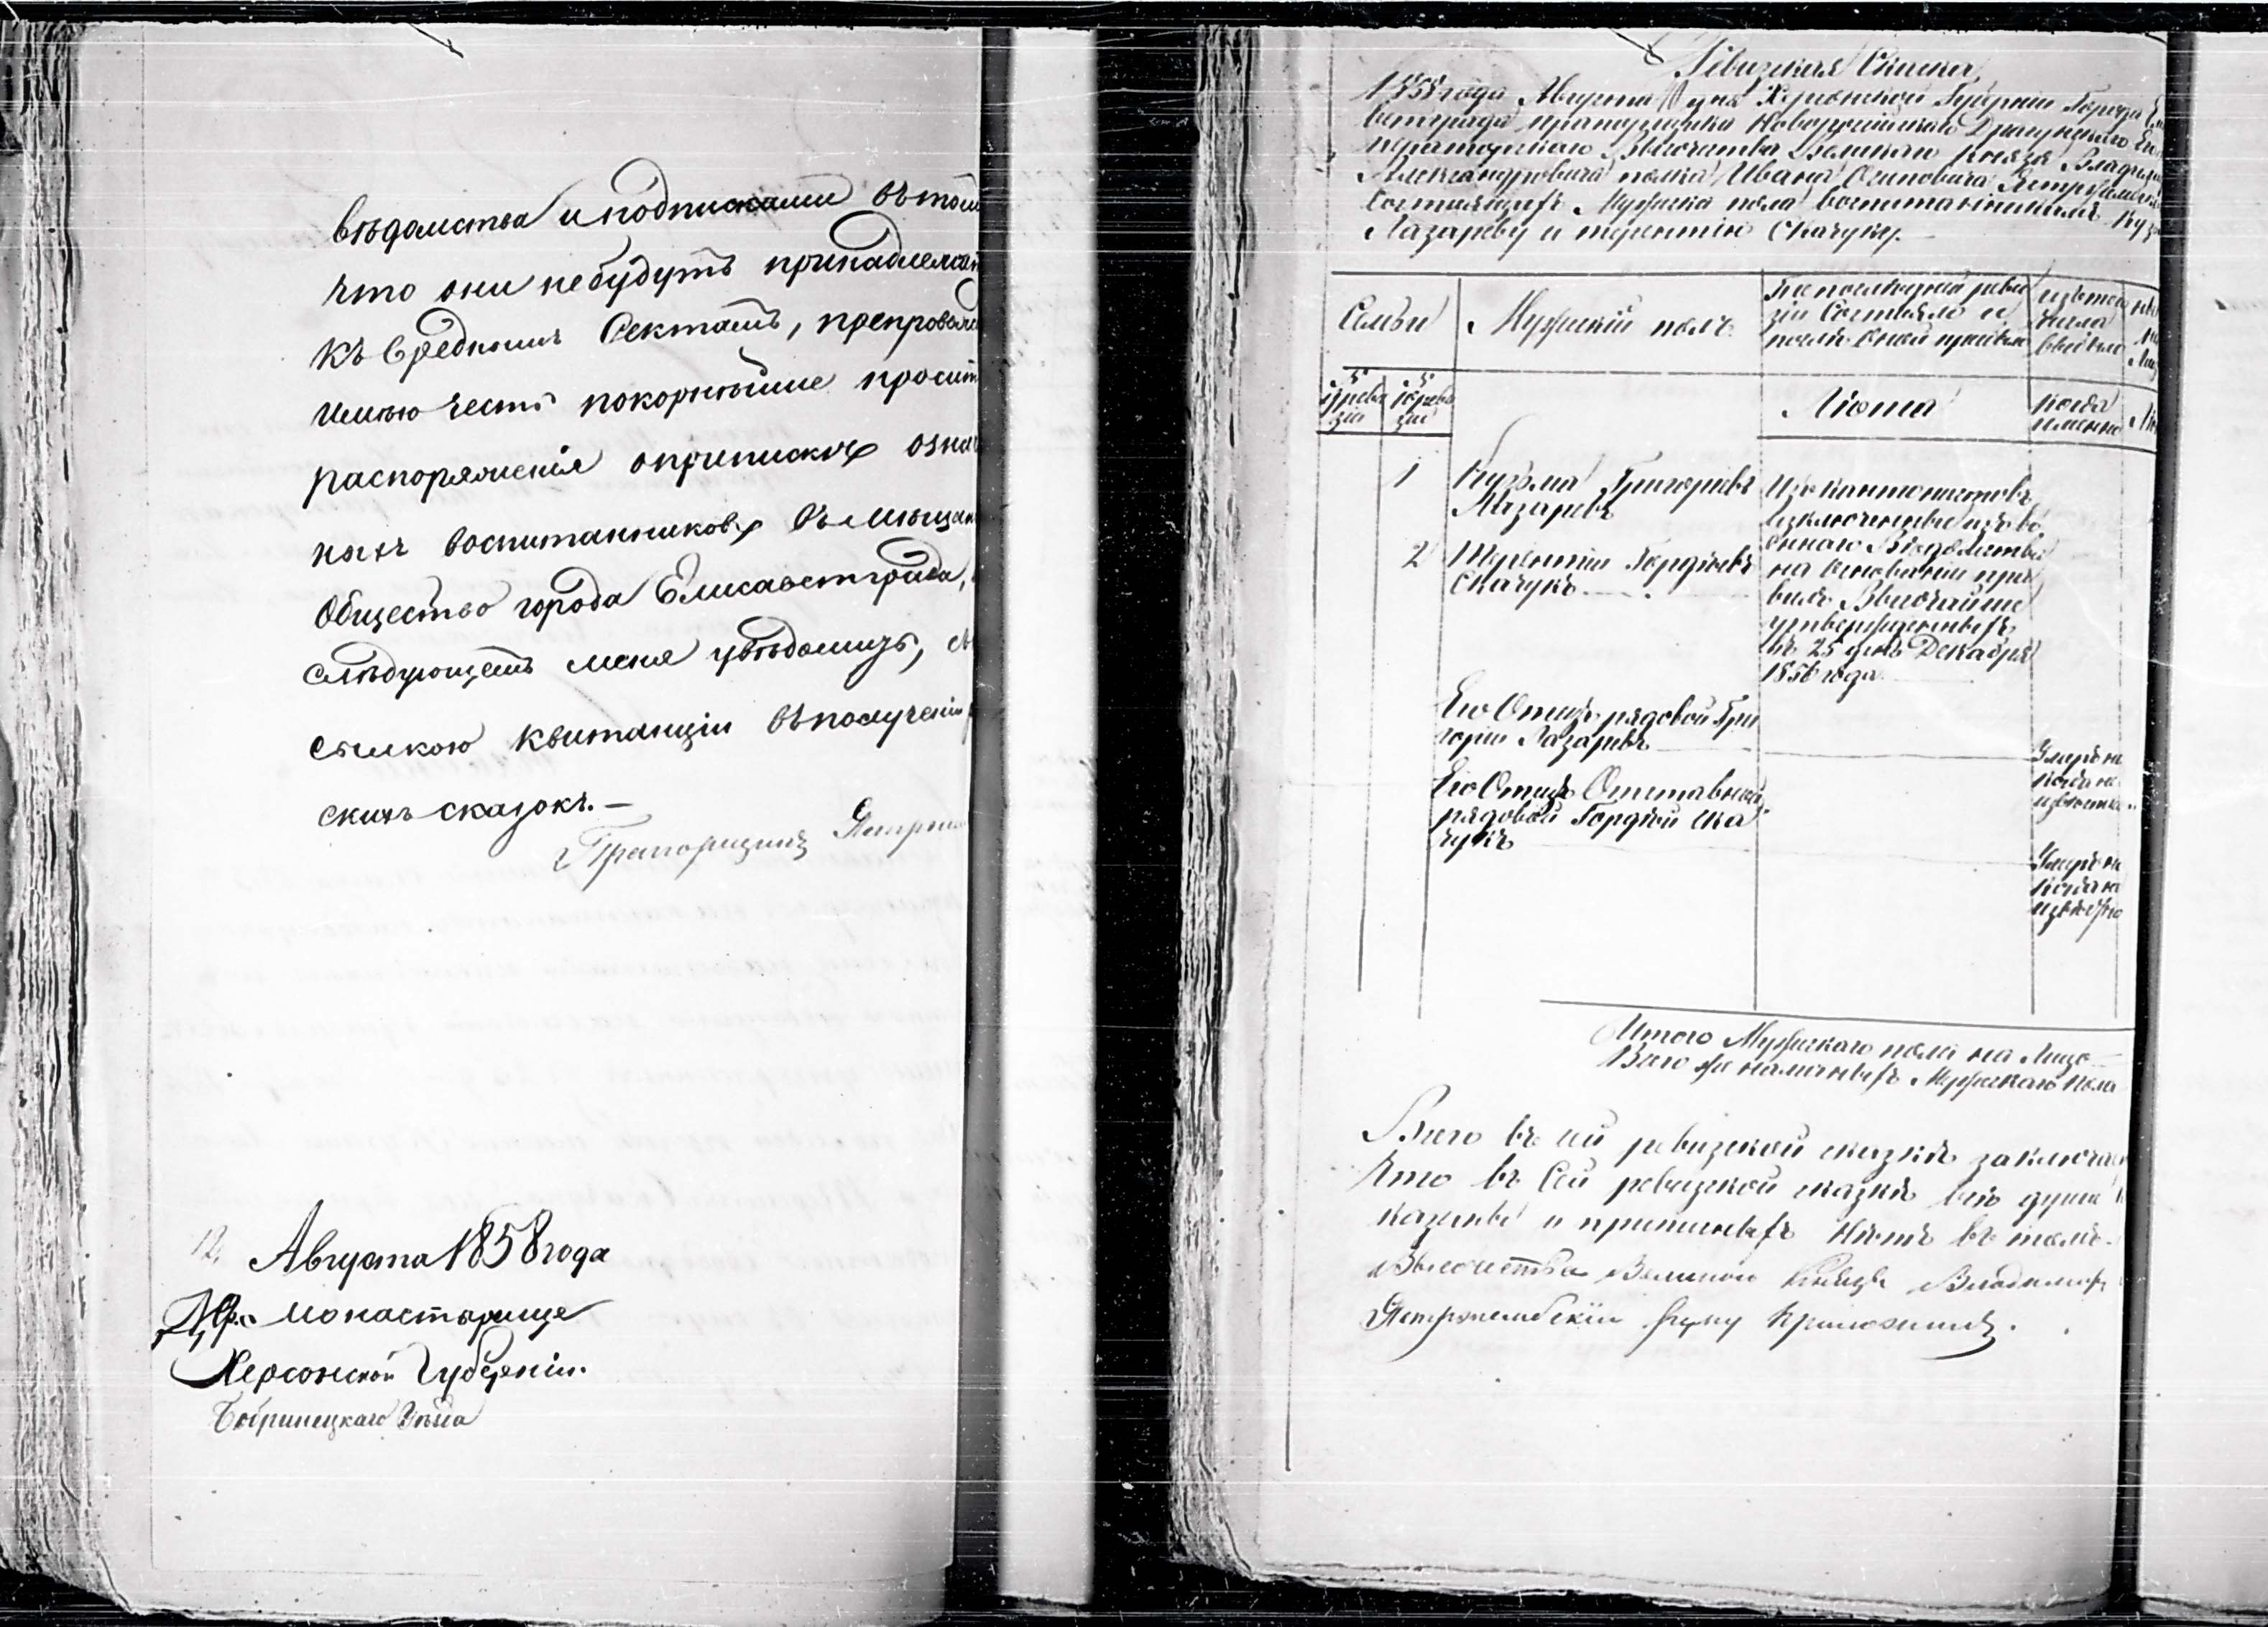 вѣдомства и подписками въ том
что они небудутъ принадлежат
къ вреднымъ Сектамъ, препровожд
имѣю честь покорнѣйше просит
распоряженія оприпискѣ озна
ныхъ воспитанниковъ въ мѣщан
Общество города Елисаветграда,
слѣдующемъ меня увѣдомить, съ
сылкою квитанціи въ полученіи
скихъ сказокъ. —
Прапорщикъ Ястрже
12, Августа 1858 года
Монастырище
Херсонской Губерніи
Бобринецкаго Уѣзда
Ревизская Сказка
1858 года Августа дня Херсонской Губерніи Города Ел
ветграда прапорщика Новороссійскаго Драгунскаго Ею
ператорскаго Высочества Великаго Князя Владимір
Александровича полка Ивана Осиповича Ястржемск
Состоящихъ Мужска пола воспитанникамъ Куз
Лазареву и терентію Скачуку. —
Семьи
Мужскій полъ
По последней реви
зіи Состояло и
послѣ Оной прибыло
изъ того
числа
выбыло
реви
зіи
реви
зіи
Лѣта
когда
именно
1
Кузьма Григорьевъ
Лазаревъ
Изъ кантонистовъ
изключенные изъ во
еннаго Вѣдомства
на основаніи пра
вилъ Высочайше
утвержденныхъ
въ 25 день Декабря
1856 года
2
Терентій Гордѣевъ
Скачукъ
Его Отецъ рядовой Гри
горій Лазаревъ
Умеръ но
когда не
извѣстно
Его Отецъ Отставной
рядовой Гордѣй Ска
чукъ
Умеръ но
когда не
извѣстно
Итого Мужескаго пола на Лицо —
Всего же наличныхъ Мужескаго пола
Всего въ сей ревизской сказкѣ заключае
Что въ Сей ревизской сказкѣ всѣ души
казаны и прописныхъ нѣтъ въ томъ
Высочества Великого Князя Владимір
Ястржембскій руку приложилъ.